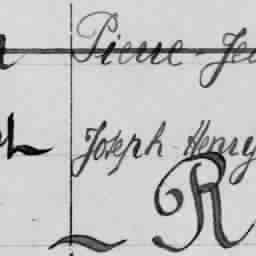 Pierre-Je
Joseph Henry
R